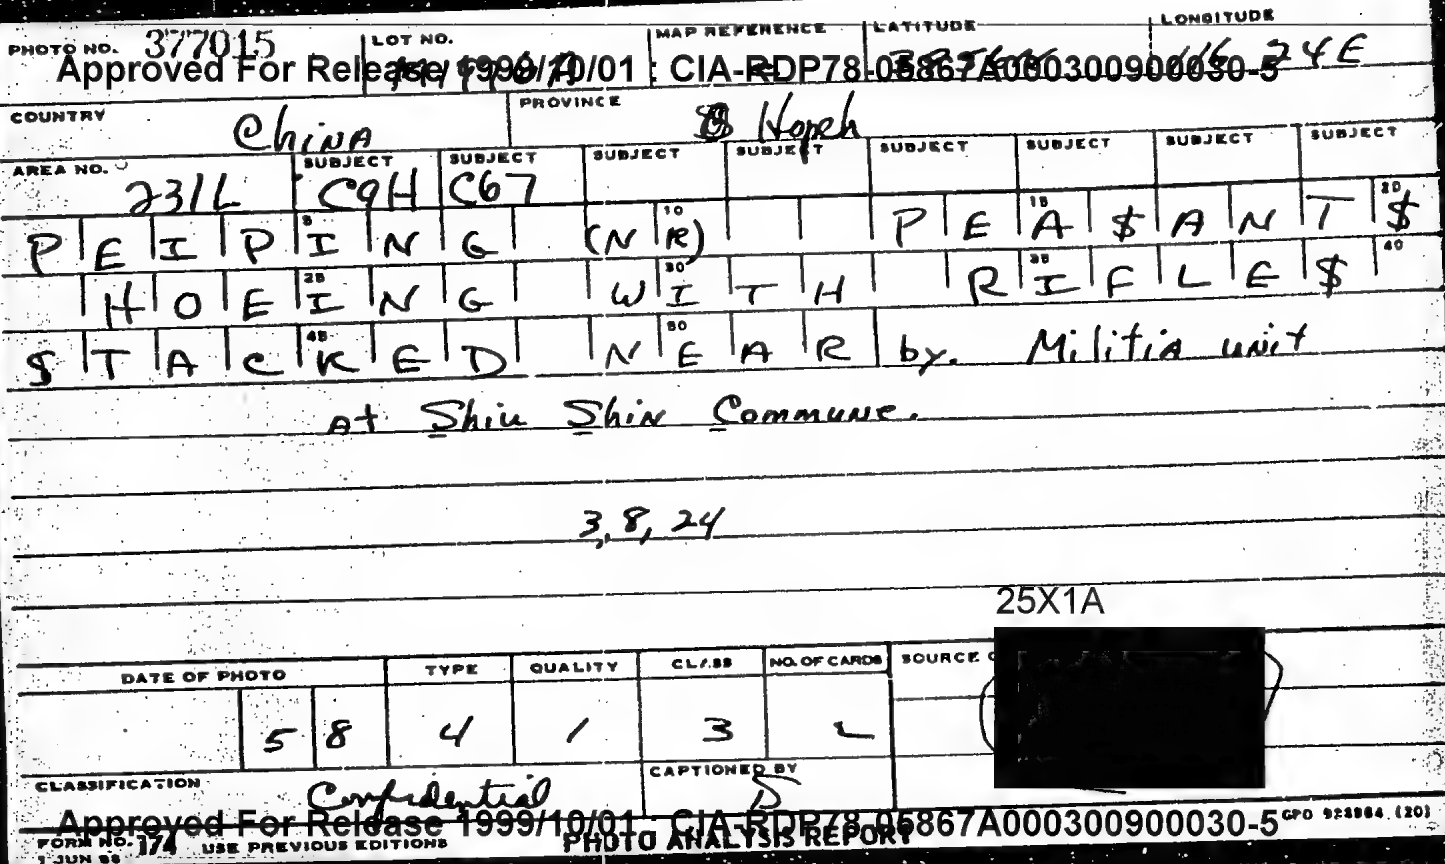 PHOTO NO. 377015 LOT NO. MAP REFERENCE LATITUDE LONGITUDE 24E
Approved For Release 1999/10/01 : CIA-RDP78-05867A000300900030-5
COUNTRY China PROVINCE Hopeh
AREA NO. 231L SUBJECT C9H SUBJECT C67 SUBJECT SUBJECT SUBJECT SUBJECT SUBJECT SUBJECT
PEIPING (NR) PEA$ANT$
5 10 15 20
HOEING WITH RIFLE$
25 30 35 40
$TACKED NEAR by. Militia unit
45 50
At Shiu Shin Commune.
3, 8, 24
25X1A
DATE OF PHOTO TYPE QUALITY CLASS NO. OF CARDS SOURCE
58 4 1 3 2
CLASSIFICATION Confidential CAPTIONED BY
Approved For Release 1999/10/01 : CIA-RDP78-05867A000300900030-5
FORM NO. 174 USE PREVIOUS EDITIONS PHOTO ANALYSIS REPORT GPO (20)
1 JUN